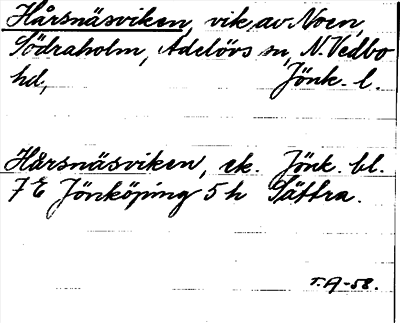 Hårsnäsviken, vik av Noen,
Södraholm, Adelövs sn, N. Vedbo
hd, Jönk. l.
Hårsnäsviken, ek. Jönk. bl.
7 E Jönköping 5 h Sättra.
T.A-58.